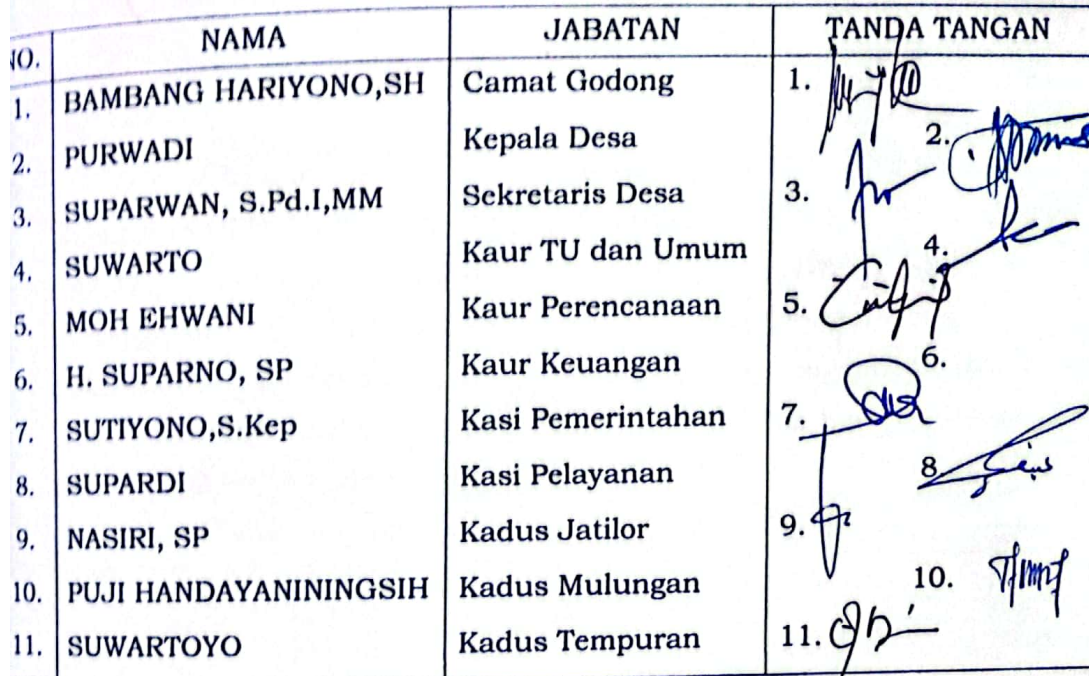 NO. NAMA JABATAN TANDA TANGAN
1. BAMBANG HARIYONO,SH Camat Godong 1.
2. PURWADI Kepala Desa 2.
3. SUPARWAN, S.Pd.I,MM Sekretaris Desa 3.
4. SUWARTO Kaur TU dan Umum 4.
5. MOH EHWANI Kaur Perencanaan 5.
6. H. SUPARNO, SP Kaur Keuangan 6.
7. SUTIYONO,S.Kep Kasi Pemerintahan 7.
8. SUPARDI Kasi Pelayanan 8
9. NASIRI, SP Kadus Jatilor 9.
10. PUJI HANDAYANININGSIH Kadus Mulungan 10.
11. SUWARTOYO Kadus Tempuran 11.